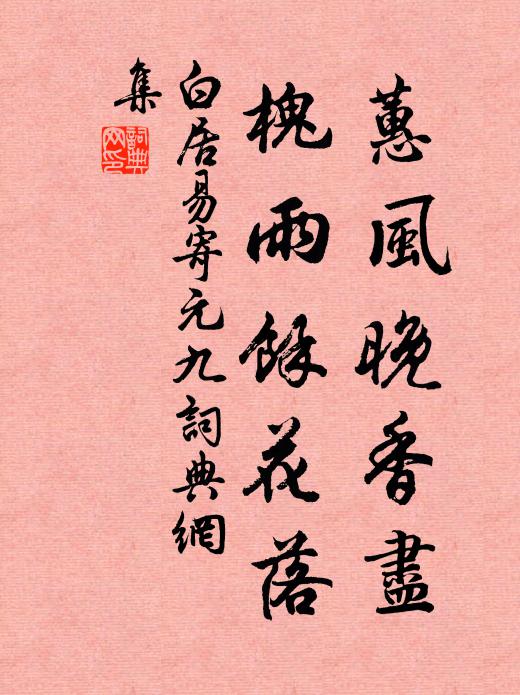 蕙風晚香盡
槐雨餘花落
白居易寄元九詞典網
集
詞典
网印